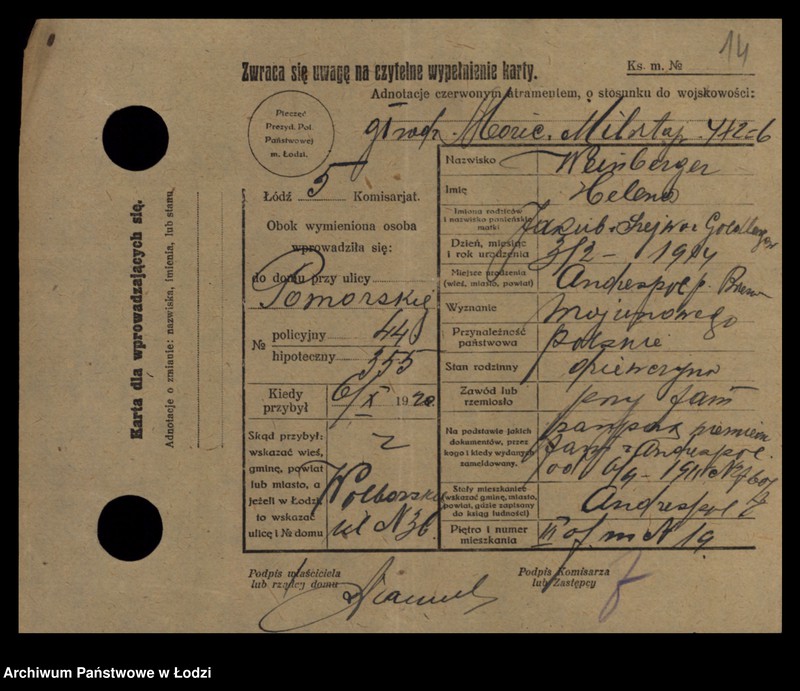 14
Zwraca się uwagę na czytelne wypełnienie karty.
Ks. m. №
Adnotacje czerwonym atramentem, o stosunku do wojskowości:
Pieczęć
Prezyd. Pol.
Państwowej
m. Łodzi.
Łódź 5 Komisarjat.
Obok wymieniona osoba
wprowadziła się:
do domu przy ulicy
Pomorskiej
№
policyjny 44
hipoteczny 355
Kiedy przybył
6/X 1920
Skąd przybył:
wskazać wieś,
gminę, powiat
lub miasto, a
jeżeli w Łodzi,
to wskazać
ulicę i № domu
z
Wolborska
ul N 36
Nazwisko Weinberger
Imię Helena
Imiona rodziców
i nazwisko panieńskie
matki
Jakub
Dzień, miesiąc
i rok urodzenia
3/2 - 1914
Miejsce urodzenia
(wieś, miasto, powiat)
Andrespol p.
Wyznanie mojżeszowego
Przynależność
państwowa
polskie
Stan rodzinny dziewczyna
Zawód lub
rzemiosło
przy
Na podstawie jakich
dokumentów, przez
kogo i kiedy wydanych
zameldowany.
z Andrespol.
Stały mieszkaniec
(wskazać gminę, miasto,
powiat, gdzie zapisany
do ksiąg ludności)
Andrespol
Piętro i numer
mieszkania
of. m N 19
Podpis właściciela
lub rządcy domu
Podpis Komisarza
lub Zastępcy
Karta dla wprowadzających się.
Adnotacje o zmianie: nazwiska, imienia, lub stanu
Archiwum Państwowe w Łodzi